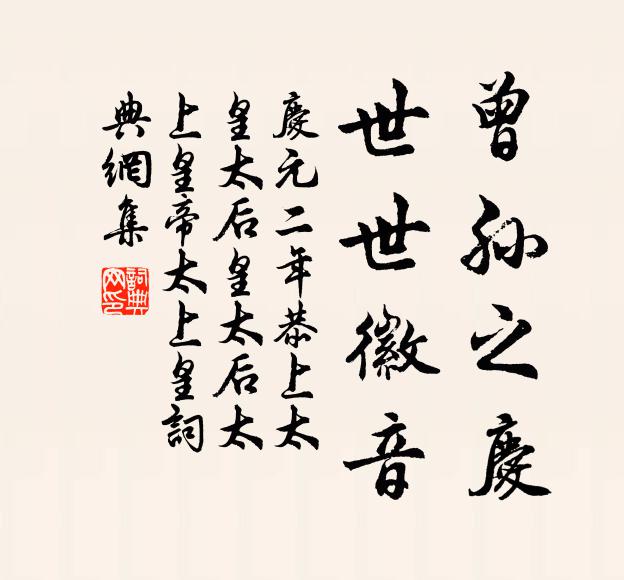 曾孫之慶
世世徽音
慶元二年恭上太
皇太后皇太后太
上皇帝太上皇詞
典網集
詞典網印